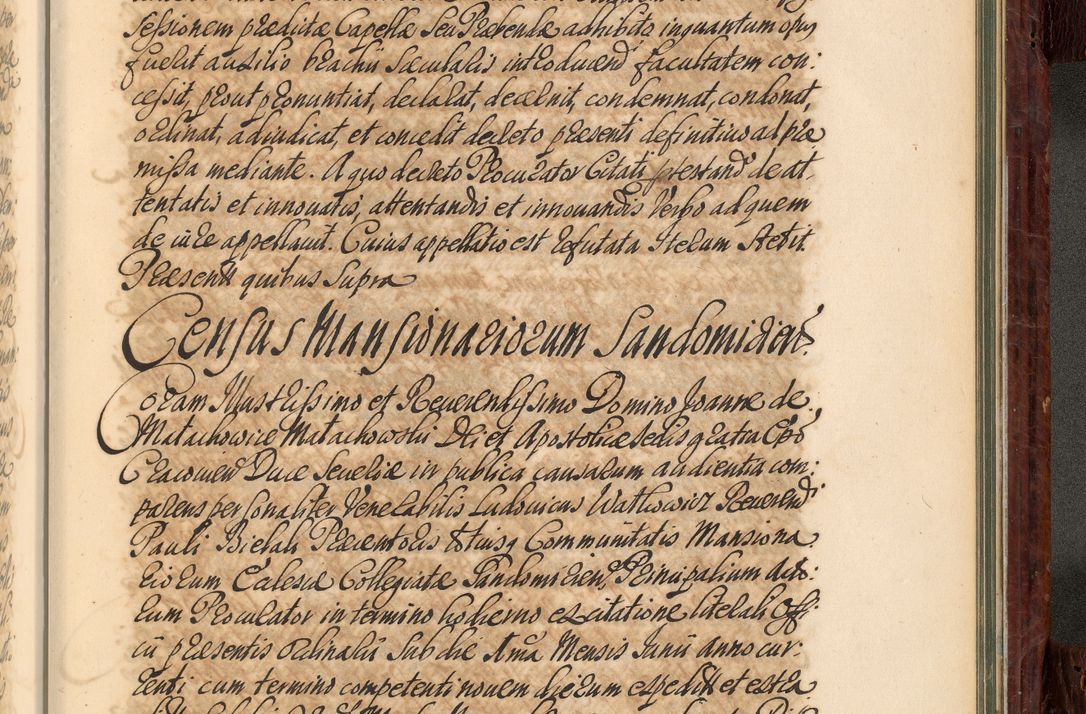 sessionem prædictæ Capellæ seu Præbendæ adhibito inquantum opus
fuerit auxilio brachii sæcularis introducend facultatem con:
cessit, prout pronuntiat, declarat, decernit, condemnat, condonat,
ordinat, adiudicat, et concedit decreto præsenti definitiuo ad præ
missa mediante. A quo decreto Procurator Citati protestand de at
tentatis et innouatis, attentandis et innouandis Verbo ad quem
de iure appellauit. Cuius appellatio est refutata Iterum Stetit
Præsent quibus supra
Census Mansionariorum Sandomirien
Coram Illustrissimo et Reuerendissimo Domino Joanne de
Małachowice Małachowski Dei et Apostolicæ sedis gratia Epo
Cracouien Duce Seueriæ in publica causarum audientia com:
parens personaliter Venerabilis Ludouicus Reuerendi
Pauli Præcentoris totiusq Communitatis Mansiona
riorum Ecclesiæ Collegiatæ Sandomirien, Principalium acto:
rum Procurator in termino hodierno ex citatione literali Offi
cii præsentis ordinarii sub die Mensis Junii anno cur:
renti cum termino competenti nouem dierum expedit et extra